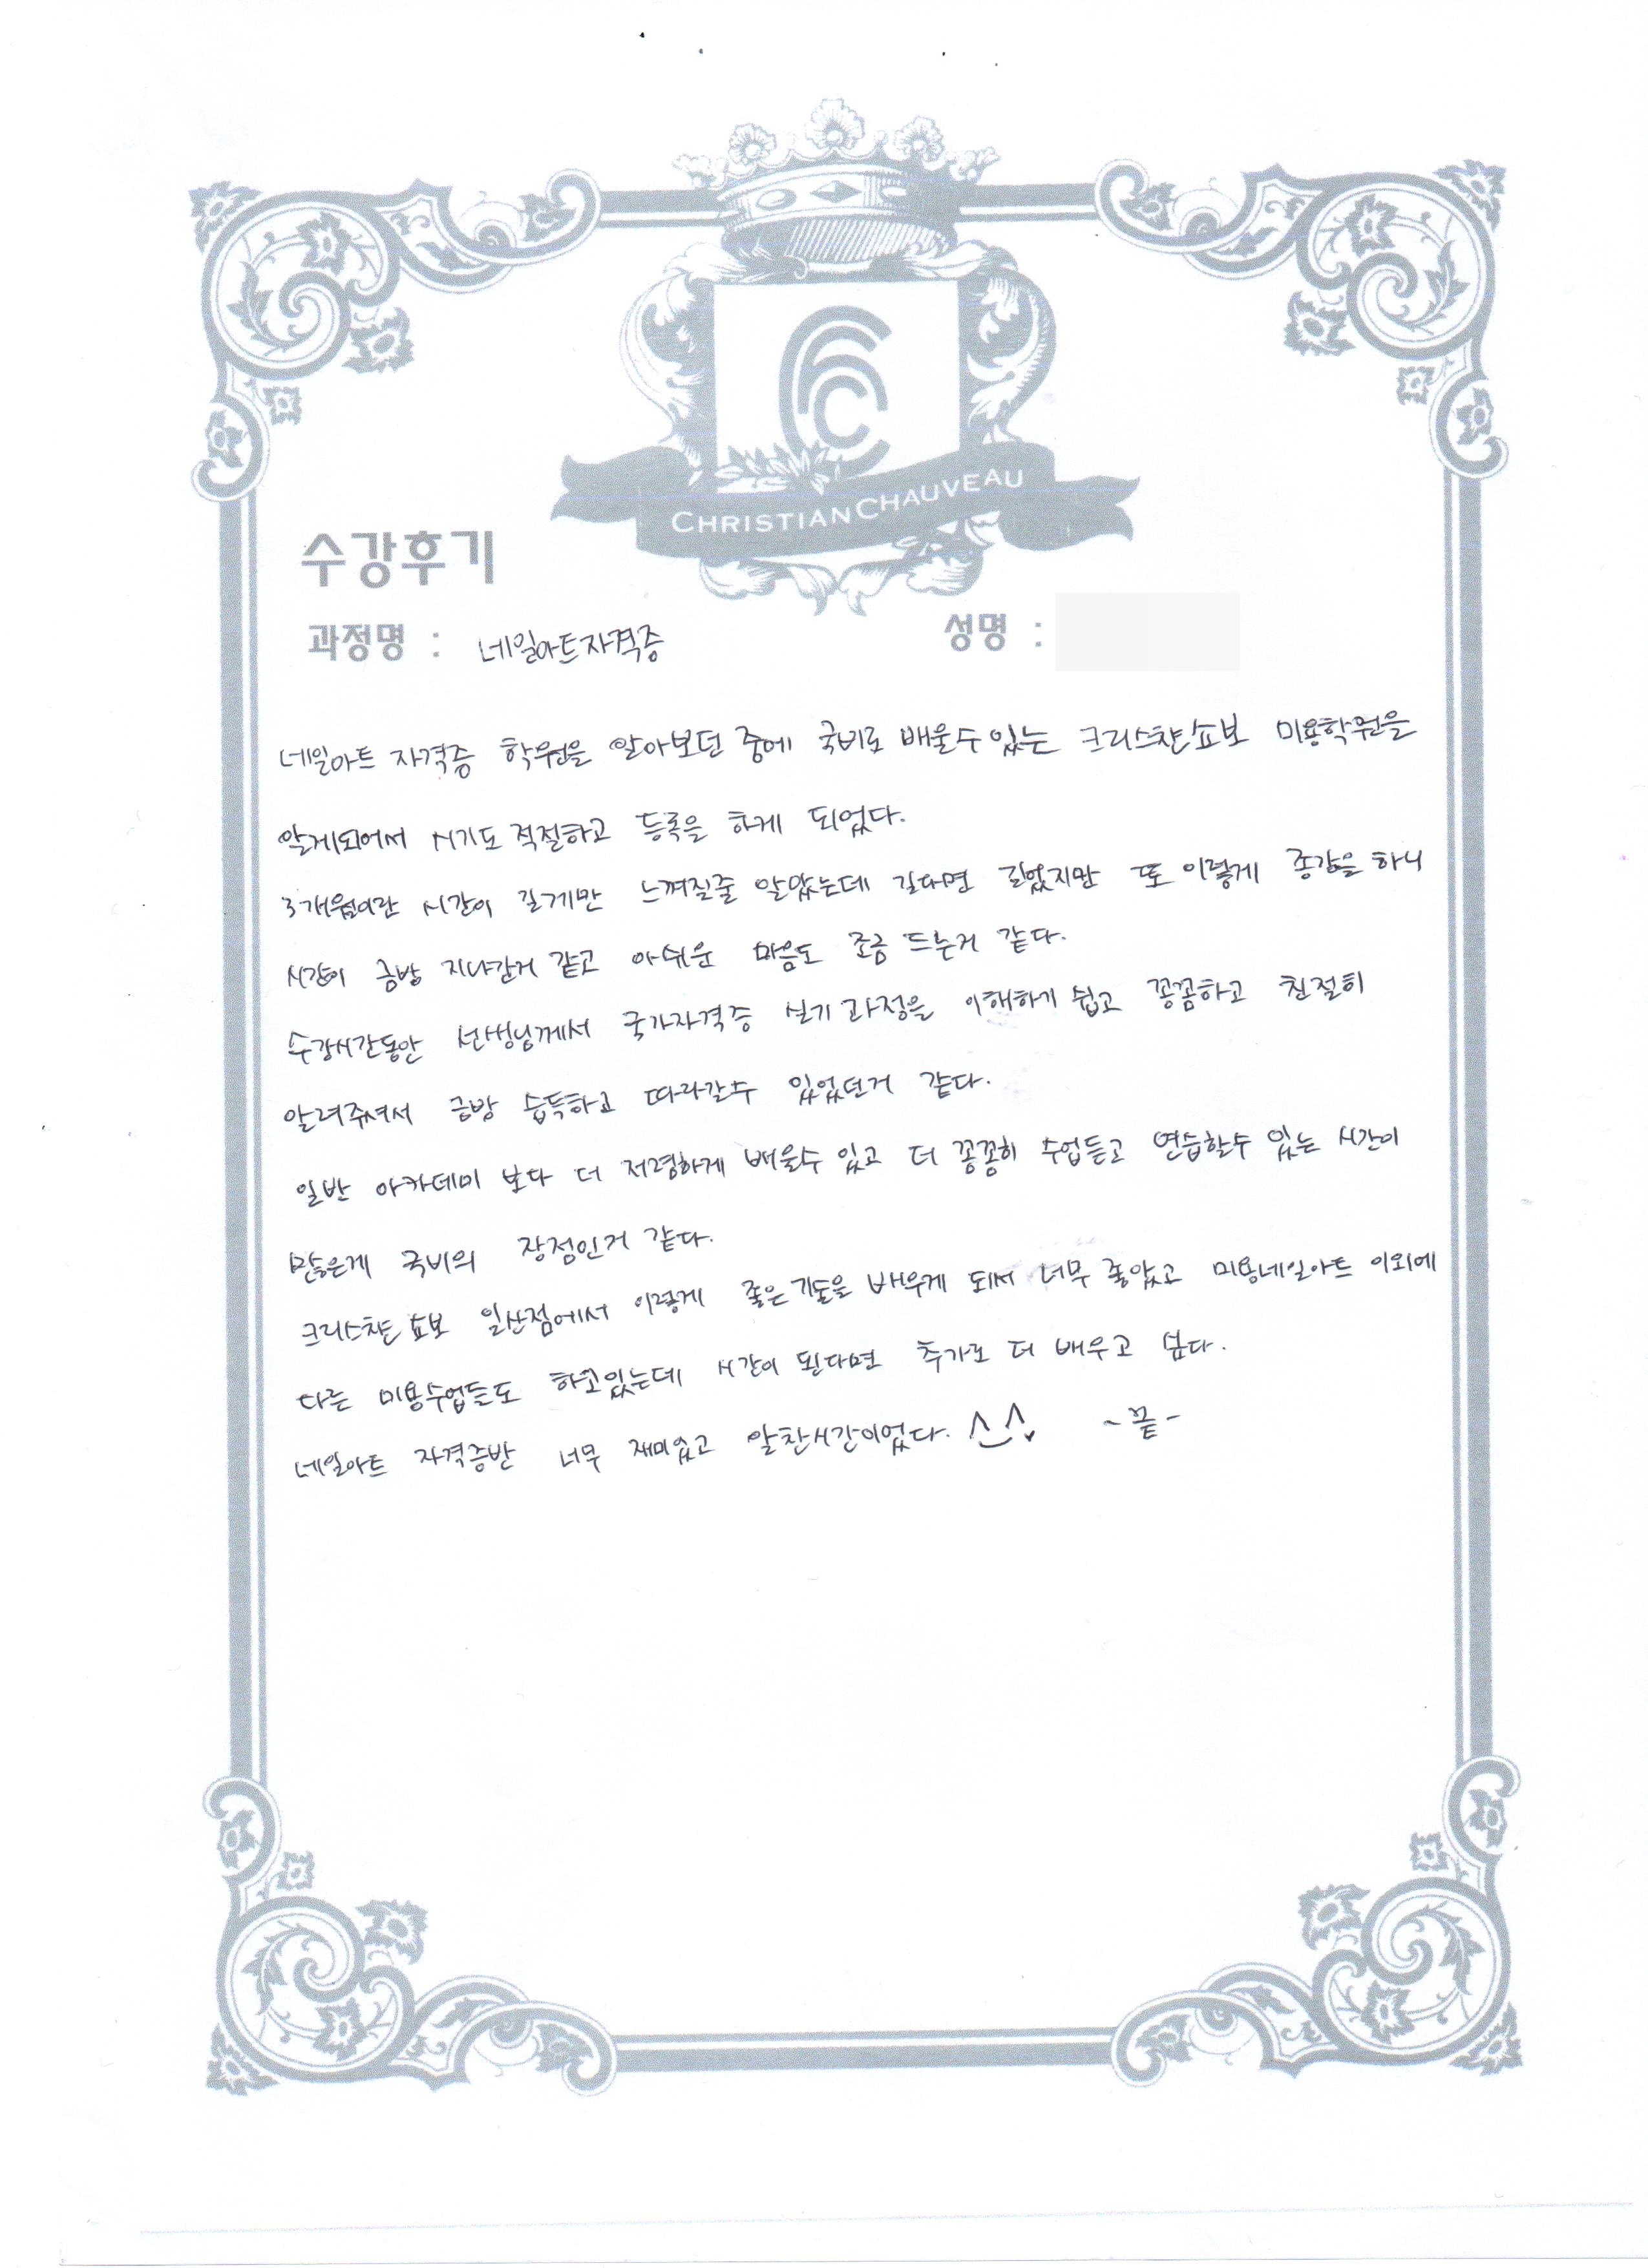 CHRISTIAN CHAUVEAU
수강후기
과정명 : 네일아트자격증 성명 :
네일아트 자격증 학원을 알아보던 중에 국비로 배울수 있는 크리스챤쇼보 미용학원을
알게되어서 시기도 적절하고 등록을 하게 되었다.
3개월이란 시간이 길게만 느껴질줄 알았는데 길다면 길었지만 또 이렇게 종강을 하니
시간이 금방 지나간거 같고 아쉬운 마음도 조금 드는거 같다.
수강시간동안 선생님께서 국가자격증 실기 과정을 이해하기 쉽고 꼼꼼하고 친절히
알려주셔서 금방 습득하고 따라갈수 있었던거 같다.
일반 아카데미 보다 더 저렴하게 배울수 있고 더 꼼꼼히 수업듣고 연습할수 있는 시간이
많은게 국비의 장점인거 같다.
크리스챤 쇼보 일산점에서 이렇게 좋은 기술을 배우게 되서 너무 좋았고 미용네일아트 이외에
다른 미용수업들도 하고있는데 시간이 된다면 추가로 더 배우고 싶다.
네일아트 자격증반 너무 재미있고 알찬시간이었다. ^^ -끝-